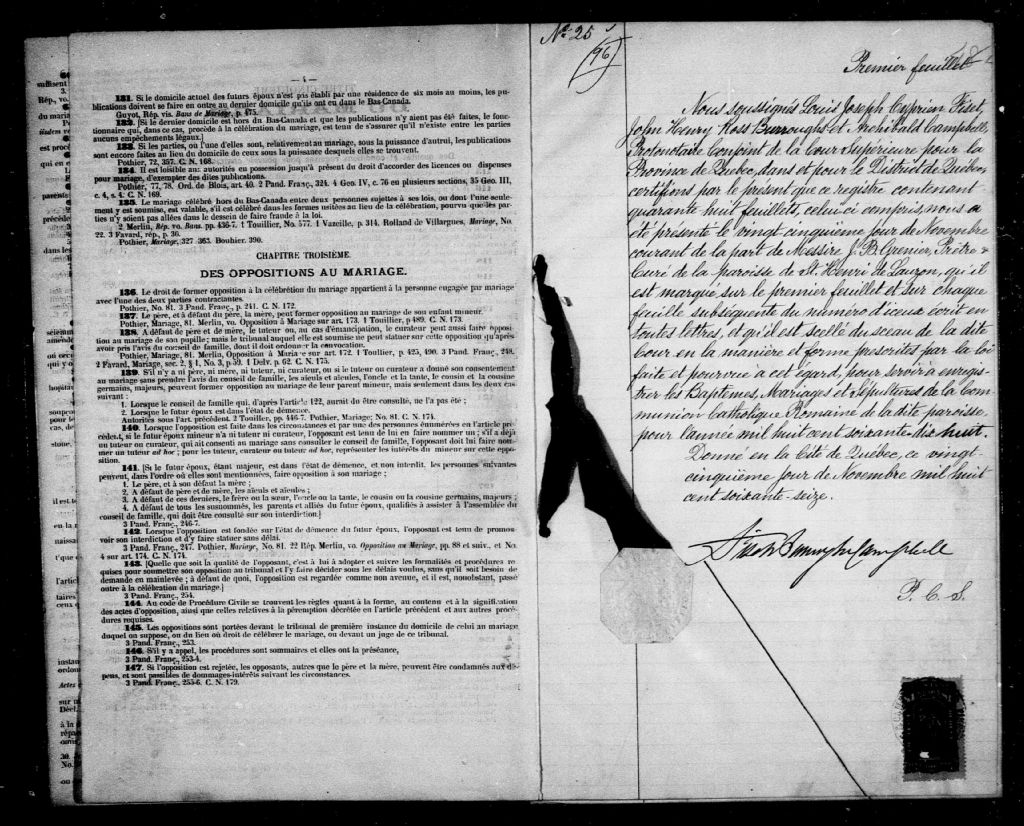 — 4 —
131. Si le domicile actuel des futurs époux n'est pas établi par une résidence de six mois au moins, les pu-
blications doivent se faire en outre au dernier domicile qu'ils ont eu dans le Bas-Canada.
Guyot, Rép. vis. Bans de Mariage, p. 475.
132. [Si le dernier domicile est hors du Bas-Canada et que les publications n'y aient pas été faites, le fonc-
tionnaire qui, dans ce cas, procède à la célébration du mariage, est tenu de s'assurer qu'il n'existe entre les parties
aucuns empêchements légaux.]
133. Si les parties, ou l'une d'elles sont, relativement au mariage, sous la puissance d'autrui, les publications
sont encore faites au lieu du domicile de ceux sous la puissance desquels elles se trouvent.
Pothier, 72, 357. C. N. 168.
134. Il est loisible aux autorités en possession jusqu'à présent du droit d'accorder des licences ou dispenses
pour mariage, d'exempter des dites publications.
Pothier, 77, 78. Ord. de Blois, art. 40. 2 Pand. Franç. 324. 4 Geo. IV, c. 76 en plusieurs sections, 35 Geo. III,
c. 4, s. 4. C. N. 169.
135. Le mariage célébré hors du Bas-Canada entre deux personnes sujettes à ses lois, ou dont l'une seule-
ment y est soumise, est valable, s'il est célébré dans les formes usitées au lieu de la célébration, pourvu que les par-
ties n'y soient pas allées dans le dessein de faire fraude à la loi.
2 Merlin, Rép. vo. Bans. pp. 436-7. 1 Touiller, No. 577. 1 Vazeille, p. 314. Rolland de Villargues, Mariage, No.
22. 3 Favard, rép., p. 36.
Pothier, Mariage, 327 363. Bouhier. 390.
CHAPITRE TROISIEME.
DES OPPOSITIONS AU MARIAGE.
136. Le droit de former opposition à la célébration du mariage appartient à la personne engagée par mariage
avec l'une des deux parties contractantes.
Pothier, No. 81. 3 Pand. Franç., p. 241. C. N. 172.
137. Le père, et à défaut du père, la mère, peut former opposition au mariage de son enfant mineur.
Pothier, Mariage, 81. Merlin, vo. Opposition à Mariage sur art. 173. 1 Touillier, p. 489. C. N. 173.
138. A défaut de père et de mère, le tuteur ou, au cas d'émancipation, le curateur peut aussi faire opposi-
tion au mariage de son pupille ; mais le tribunal auquel elle est soumise ne peut statuer sur cette opposition qu'après
avoir pris l'avis du conseil de famille, dont il doit ordonner la convocation.
Pothier, Mariage, 81. Merlin, Opposition à Mariage sur art. 172. 1 Toullier, p. 425, 490. 3 Pand. Franç., 248.
2 Favard, Mariage, sec. 2, § 1, No. 3, p. 39. 1 Delv. p. 62. C. N. 175.
139. S'il n'y a ni père, ni mère, ni tuteur, ni curateur, ou si le tuteur ou curateur a donné son consentement
au mariage sans prendre l'avis du conseil de famille, les aïeuls et aïeules, l'oncle et la tante, le cousin et la cousine
germains, majeurs, peuvent former opposition au mariage de leur parent mineur, mais seulement dans les deux cas
suivant :
1. Lorsque le conseil de famille qui, d'après l'article 122, aurait du être consulté, ne l'a pas été ;
2. Lorsque le futur époux est dans l'état de démence.
Autorités sous l'art. précédent. 2 Touiller, pp. 446-7. Pothier, Mariage; No. 81. C. N. 174.
140. Lorsque l'opposition est faite dans les circonstances et par une des personnes énumérées en l'article pré-
cédent, si le futur époux mineur n'a ni tuteur ni curateur, l'opposant est tenu de lui en faire nommer un ; s'il a déjà
un tuteur ou curateur, qui ait consenti au mariage sans consulter le conseil de famille, l'opposant doit lui faire nom-
mer un tuteur ad hoc ; pour les tuteur, curateur ou tuteur ad hoc, représenter les intérêts du mineur sur cette oppo-
sition.
141. [Si le futur époux, étant majeur, est dans l'état de démence, et non interdit. les personnes suivantes
peuvent, dans l'ordre où elles sont mentionnées, faire opposition à son mariage ;
1. Le père, et à son défaut la mère ;
2. A défaut de père et de mère, les aïeuls et aïeules ;
3. A défaut de ces derniers, le frère ou la sœur, l'oncle ou la tante, le cousin ou la cousine germains, majeurs ;
4. A défaut de tous les susnommés, les parents et alliés du futur époux, qualifiés à assister à l'Assemblée du
conseil de famille, qui doit être consulté sur son interdiction.]
3 Pand. Franç., 246-7.
142. Lorsque l'opposition est fondée sur l'état de démence du futur époux, l'opposant est tenu de promou-
voir son interdiction et d'y faire statuer sans délai.
3 Pand. Franç., 247. Pothier, Mariage, No. 81. 22 Rép. Merlin, vo. Opposition au Mariage, pp. 88 et suiv., et No.
4 sur art. 174. C. N. 174.
143. [Quelle que soit la qualité de l'opposant, c'est à lui à adopter et suivre les formalités et procédures re-
quises pour soumettre son opposition au tribunal et l'y faire décider sous les délais voulus, sans qu'il soit besoin de
demande en mainlevée ; à défaut de quoi, l'opposition est regardée comme non avenue, et il est, nonobstant, passé
outre à la célébration du mariage.]
3 Pand. Franç., 254.
144. Au code de Procédure Civile se trouvent les règles quant à la forme, au contenu et à la signification
des actes d'opposition, ainsi que celles relatives à la péremption décrétée en l'article précédent et aux autres procé-
dures requises.
145. Les oppositions sont portées devant le tribunal de première instance du domicile de celui au mariage
duquel on s'oppose, ou du lieu où doit de célébrer le mariage, ou devant un juge de ce tribunal.
3 Pand. Franç., 253.
146. S'il y a appel, les procédures sont sommaires et elles ont la préséance,
3 Pand. Franç., 253-4.
147. Si l'opposition est rejetée, les opposants, autres que le père et la mère, peuvent être condamnés aux dé-
pens, et sont passibles de dommages-intérêts suivant les circonstances.
3 Pand. Franç., 255-6. C. N. 179.
No 25
(96)
Premier feuillet
Nous soussignés Louis Joseph Cyprien Fiset,
John Henry Ross Burroughs et Archibald Campbell,
Protonotaire Conjoint de la Cour Supérieure pour la
Province de Québec, dans et pour le District de Québec,
certifions par le présent que ce registre contenant
quarante huit feuillets, celui-ci compris, nous a
été présenté le vingt cinquième jour de Novembre
courant de la part de Messire J. B. Grenier, Prêtre &
Curé de la paroisse de St. Henri de Lauzon, qu'il
est marqué sur le premier feuillet et sur chaque
feuille subséquente du numéro d'iceux écrit en
toutes lettres, et qu'il est scellé du sceau de la dite
Cour en la manière et forme prescrites par la loi
faite et pourvue à cet égard, pour servir à enregis-
trer les Baptêmes, Mariages et Sépultures de la Com-
munion Catholique Romaine de la dite paroisse,
pour l'année mil huit cent soixante-dix huit.
Donné en la Cité de Québec, ce vingt-
cinquième jour de Novembre mil huit
cent soixante-seize.
Fiset Burroughs Campbell
P. C. S.